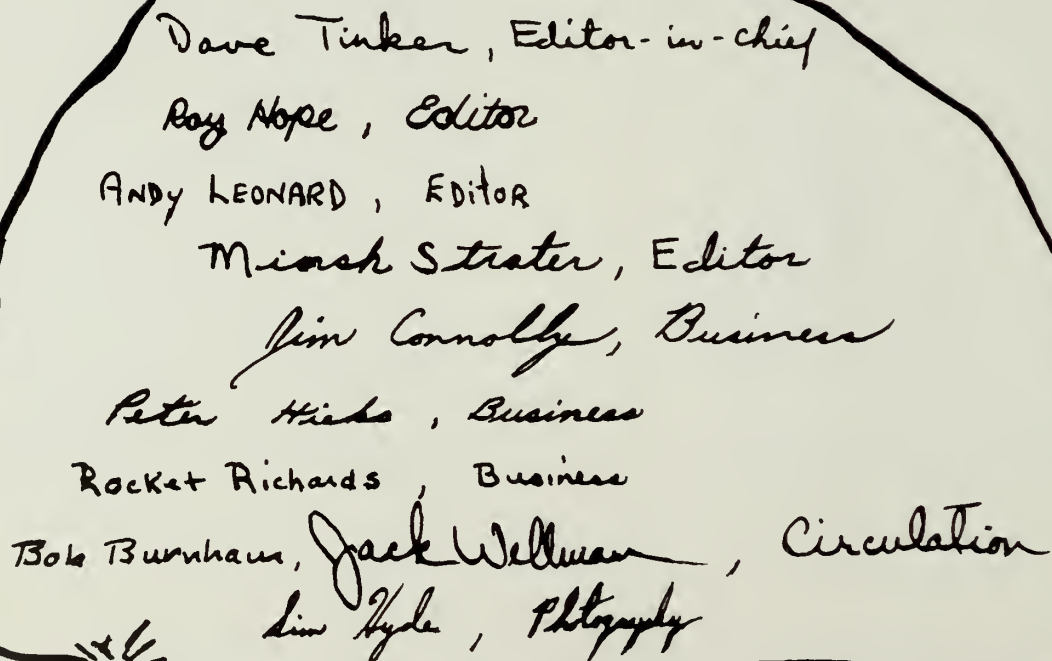 Dave Tinker, Editor-in-chief
Roy Hope, Editor
ANDY LEONARD, EDitoR
Strater, Editor
Jim Connolly, Business
Peter Hicks, Business
Rocket Richards, Business
Bob Burnham, Jack Wellman, Circulation
Hyde, Photography